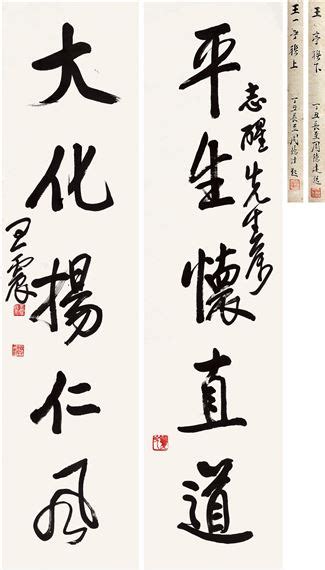 平生懷直道
志醒先生屬
大化揚仁風
王震
王一亭聯上
丁丑長至周
王一亭聯下
丁丑長至周